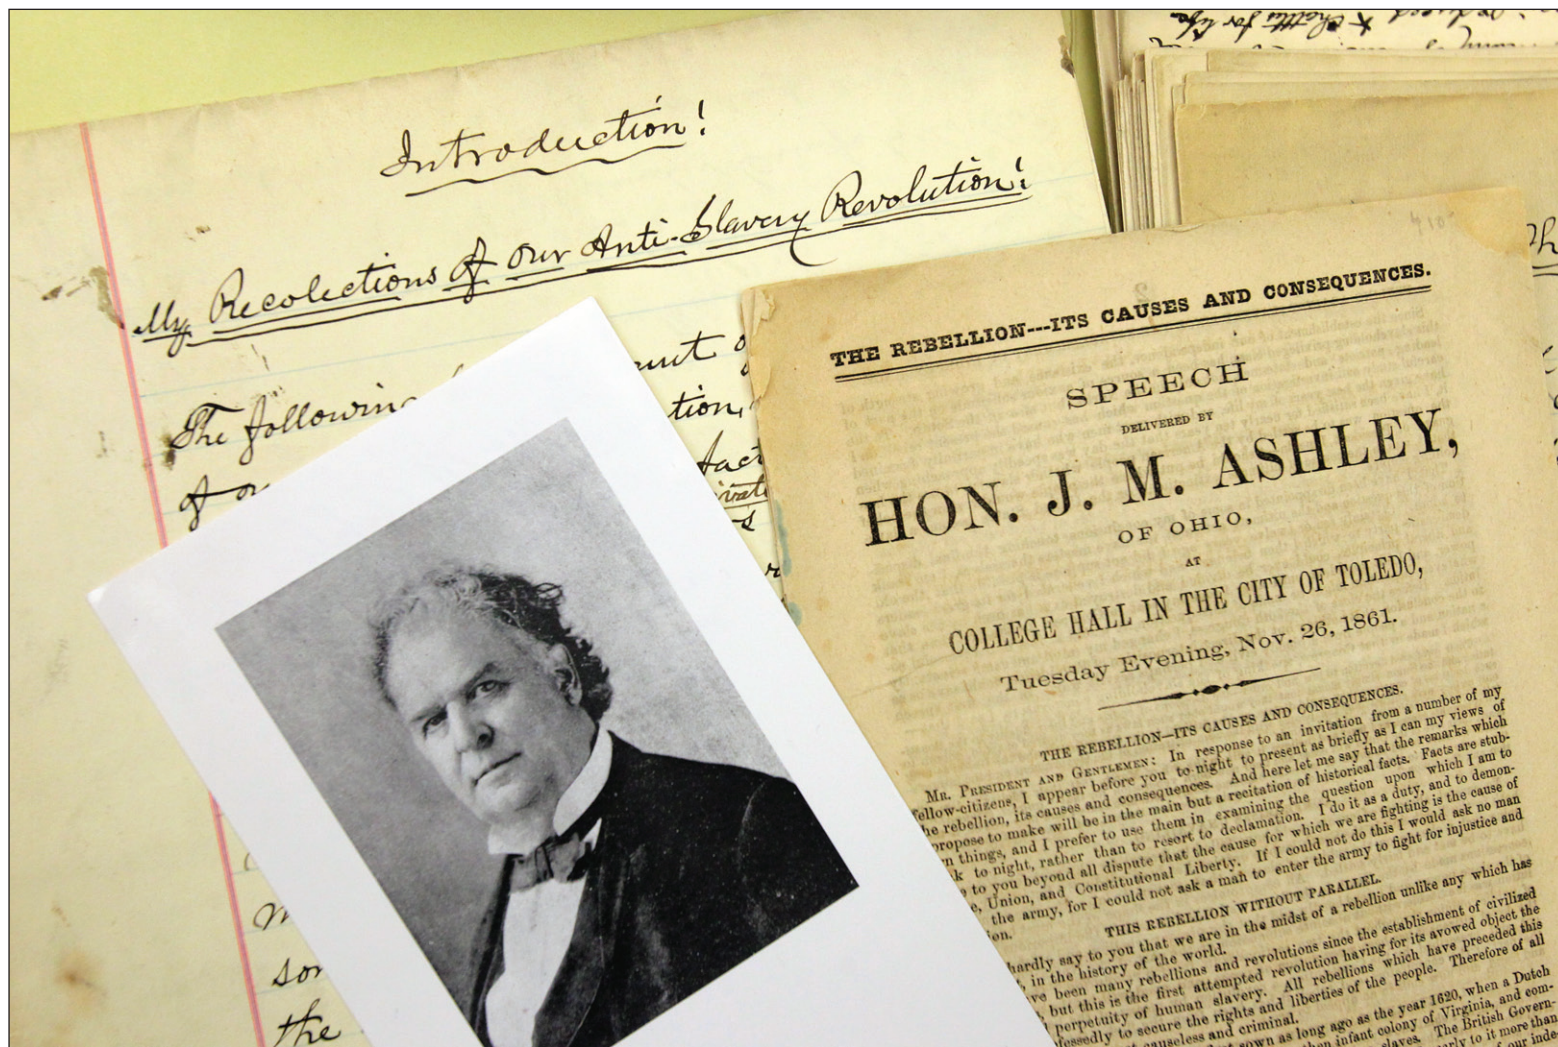 Introduction!
My Recolections of our Anti-Slavery Revolution!
The following
of
tion,
the
THE REBELLION---ITS CAUSES AND CONSEQUENCES.
SPEECH
DELIVERED BY
HON. J. M. ASHLEY,
OF OHIO,
AT
COLLEGE HALL IN THE CITY OF TOLEDO,
Tuesday Evening, Nov. 26, 1861.
THE REBELLION—ITS CAUSES AND CONSEQUENCES.
MR. PRESIDENT AND GENTLEMEN: In response to an invitation from a number of my
fellow-citizens, I appear before you to-night to present as briefly as I can my views of
he rebellion, its causes and consequences. And here let me say that the remarks which
propose to make will be in the main but a recitation of historical facts. Facts are stub-
n things, and I prefer to use them in examining the question upon which I am to
k to night, rather than to resort to declamation. I do it as a duty, and to demon-
e to you beyond all dispute that the cause for which we are fighting is the cause of
e, Union, and Constitutional Liberty. If I could not do this I would ask no man
the army, for I could not ask a man to enter the army to fight for injustice and
ion.
THIS REBELLION WITHOUT PARALLEL.
hardly say to you that we are in the midst of a rebellion unlike any which has
, in the history of the world.
ve been many rebellions and revolutions since the establishment of civilized
, but this is the first attempted revolution having for its avowed object the
perpetuity of human slavery. All rebellions which have preceded this
fessedly to secure the rights and liberties of the people. Therefore of all
t causeless and criminal.
sown as long ago as the year 1620, when a Dutch
then infant colony of Virginia, and com-
slaves. The British Govern-
early to it more than
of our inde-